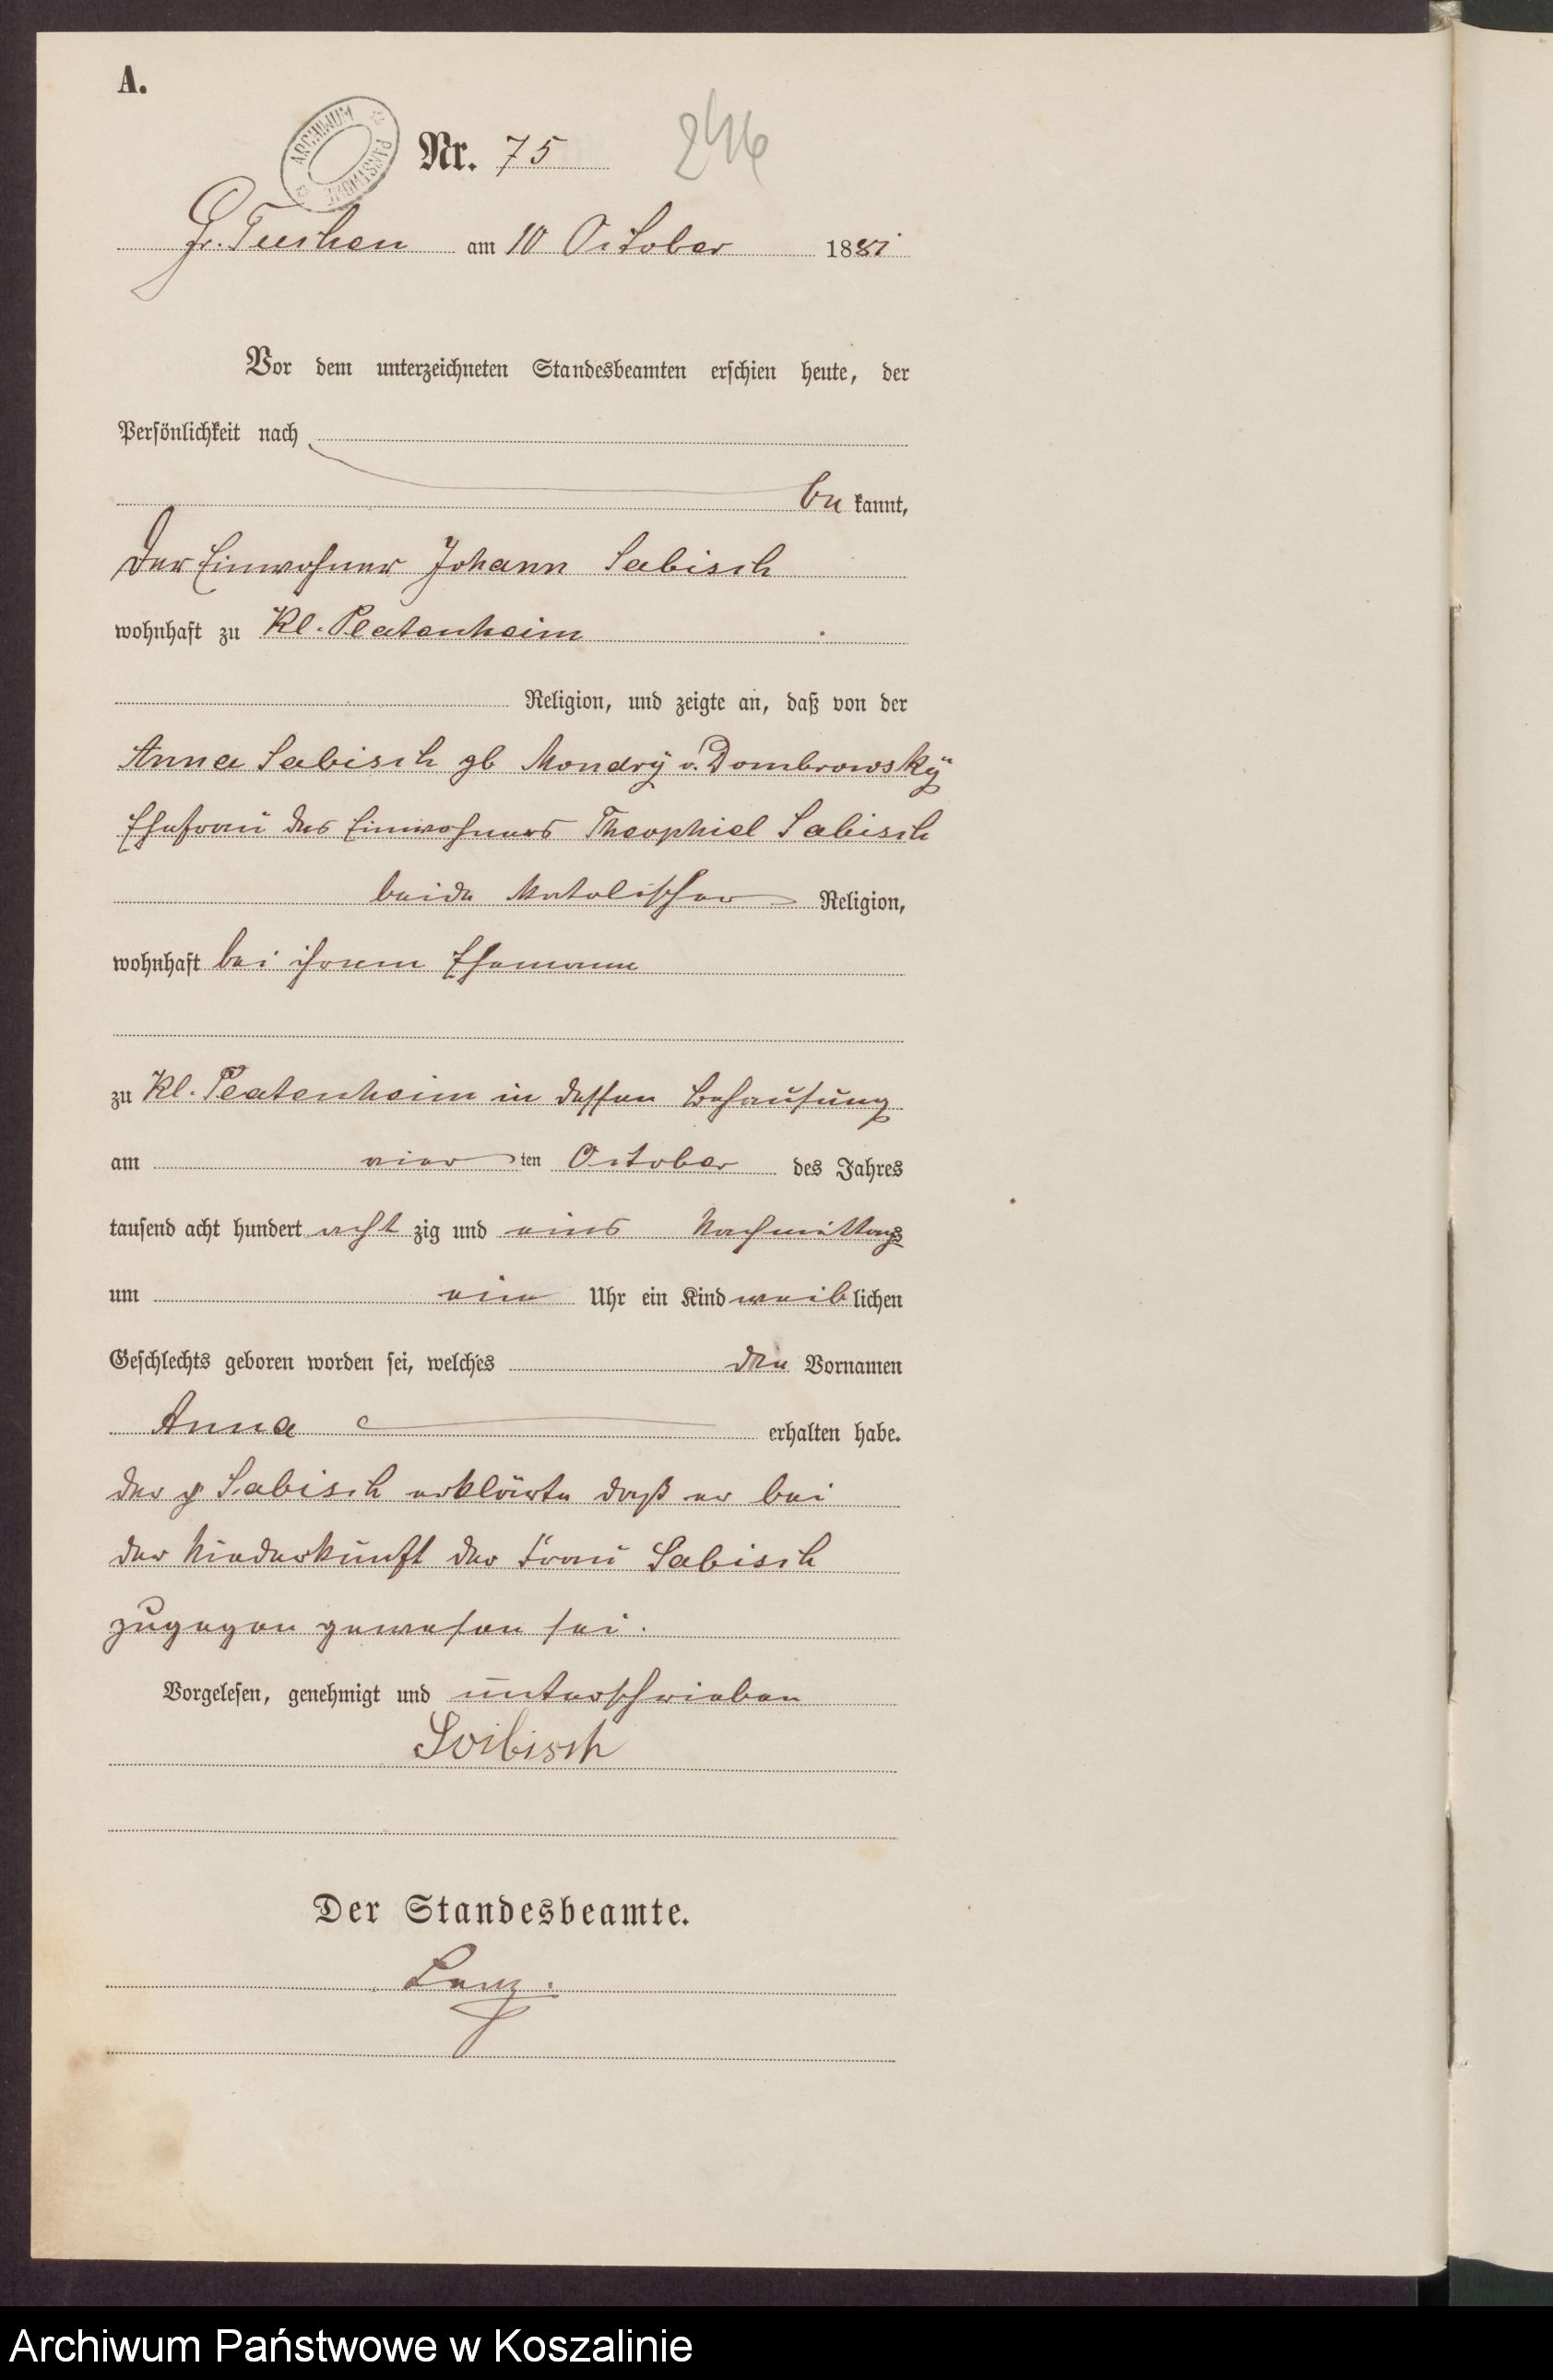 A.
ARCHIWUM PAŃSTWOWE
Nr. 75
246
Gr. Tuchen am 10 October 1881
Vor dem unterzeichneten Standesbeamten erschien heute, der
Persönlichkeit nach
be kannt,
der Einwohner Johann Sabisch
wohnhaft zu Kl. Platenheim
Religion, und zeigte an, daß von der
Anna Sabisch gb Mondrÿ v. Dombrowskÿ
Ehefrau des Einwohners Theophiel Sabisch
beide katolischer Religion,
wohnhaft bei ihrem Ehemann
zu Kl. Platenheim in dessen Behausung
am vier ten October des Jahres
tausend acht hundert acht zig und eins Nachmittags
um ein Uhr ein Kind weib lichen
Geschlechts geboren worden sei, welches den Vornamen
Anna erhalten habe.
der p Sabisch erklärte daß er bei
der Niederkunft der Frau Sabisch
zugegen gewesen sei.
Vorgelesen, genehmigt und unterschrieben
Sabisch
Der Standesbeamte.
Archiwum Państwowe w Koszalinie